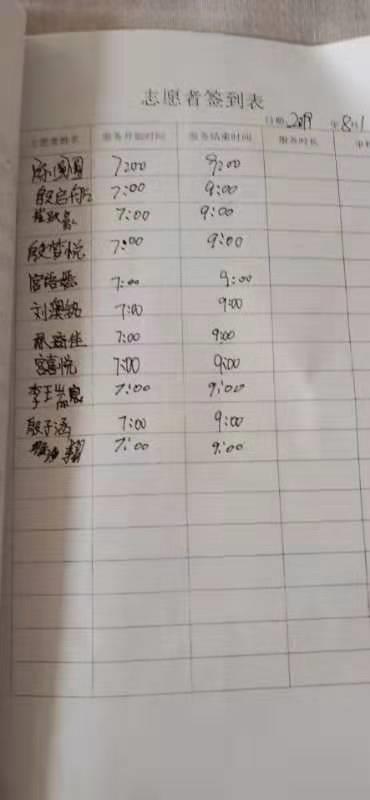 志愿者签到表
日期 2019 年 8 月 1
志愿者姓名 服务开始时间 服务结束时间 服务时长
陈圆圆 7:00 9:00
殷启 7:00 9:00
7:00 9:00
殷梦悦 7:00 9:00
宫语 7:00 9:00
刘奥铭 7:00 9:00
佳 7:00 9:00
宫喜悦 7:00 9:00
李玉 7:00 9:00
殷子涵 7:00 9:00
7:00 9:00